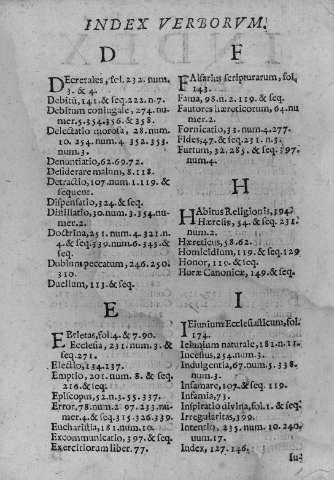 INDEX VERBORVM.
D
DEcretales, fol. 232. num.
3. & 4.
Debitũ, 141. & seq. 222. n. 7.
Debitum coniugale, 274. nu-
mer. 5. 354. 356. & 358.
Delectatio morosa, 28. num.
10. 254. num. 4 352. 353.
num. 3.
Denuntiatio, 62. 69. 72.
Desiderare malum, 8. 118.
Detractio, 107. num. 1. 119. &
sequent.
Dispensatio, 324. & seq.
Distillatio, 30. num. 3. 354. nu-
mer. 2.
Doctrina, 251. num. 4. 321. n.
4. & seq. 339. num. 6. 345. &
seq.
Dubium peccatum, 246. 250.
310.
Duellum, 113. & seq.
E
EBrietas, fol. 4. & 7. 90.
Ecclesia, 231. num. 3. &
seq. 271.
Electio, 134. 137.
Emptio, 201. num. 8. & seq.
216. & seq.
Episcopus, 52. n. 3. 55. 337.
Error, 78. num. 2 97. 233. nu-
mer. 4. & seq. 315. 326. 339.
Eucharistia, 181. num. 10.
Excommunicatio, 397. & seq.
Exercitiorum liber. 77.
F
FAlsarius scripturarum, fol.
143.
Fama, 98. n. 2. 119. & seq.
Fautores hæreticorum, 64. nu
mer. 2.
Fornicatio, 33. num. 4. 277.
Fides, 47. & seq. 231. n. 3.
Furtum, 32. 285. & seq. 397.
num. 4.
H
HAbitus Religionis, 394.
Hæresis, 54. & seq. 231.
num. 2.
Hæreticus, 58. 62.
Homicidium, 119. & seq. 129
Honor, 119. & seq.
Horæ Canonicæ, 149. & seq.
I
IEiunium Ecclesiasticum, fol.
174.
Ieiunium naturale, 181. n. 11.
Incestus, 254. num. 3.
Indulgentia, 67. num. 5. 338.
num. 3.
Infamare, 107. & seq. 119.
Infamia, 73.
Inspiratio divina, fol. 1. & seq.
Irregularitas, 399.
Intentio, 235. num. 10. 240.
num. 17.
Index, 127. 146.